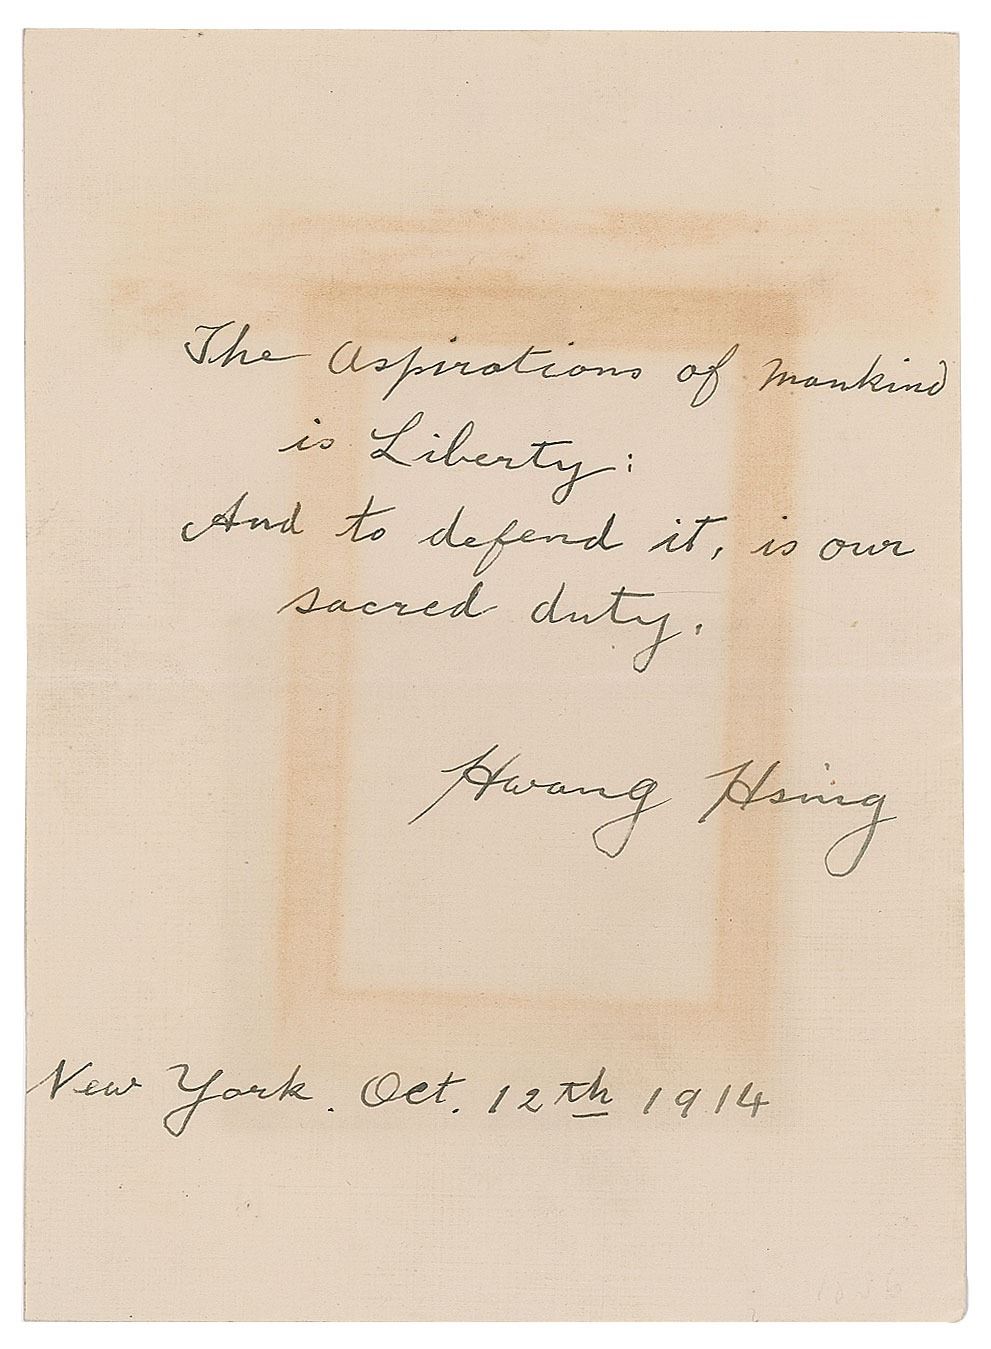 The Aspirations of Mankind
is Liberty:
And to defend it, is our
sacred duty.
Hwang Hsing
New York. Oct. 12th 1914